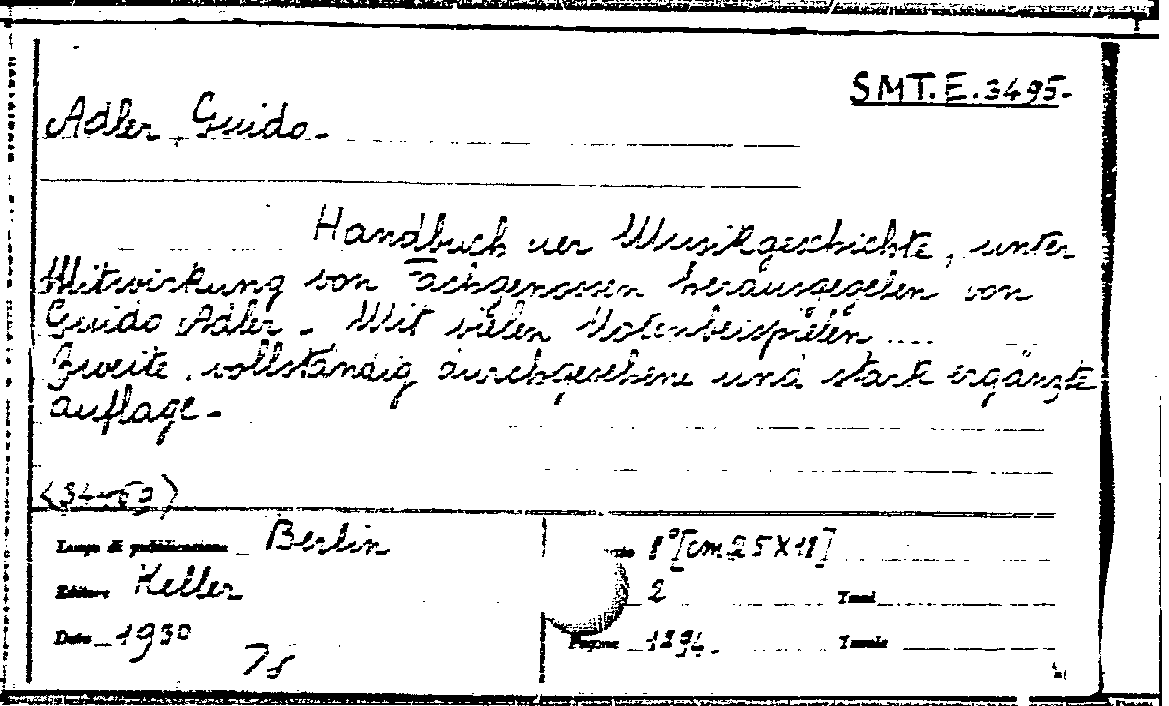 SMT.E.3495.
Adler, Guido.
Handbuch der Musikgeschichte, unter
Mitwirkung von Fachgenossen herausgegeben von
Guido Adler. Mit vielen Notenbeispielen ....
Zweite, vollständig durchgesehene und stark ergänzte
auflage.
Luogo di pubblicazione Berlin
8° [cm 25 X 18]
Editore Keller
2 Tomi
Data 1930
Pagine Tavole